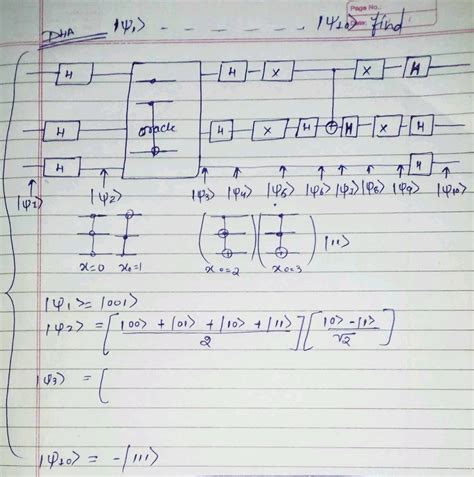 Page No.
DHA |ψ₁> - - - - - - - - - - - - |ψ₁₀> find
H H X X H
H oracle H X H H X H
H H
|ψ₁> |ψ₂> |ψ₃> |ψ₄> |ψ₅> |ψ₆> |ψ₇> |ψ₈> |ψ₉> |ψ₁₀>
|11>
x=0 x₀=1 x₀=2 x₀=3
|ψ₁> = |001>
|ψ₂> = [ |00> + |01> + |10> + |11> / 2 ] [ |0> - |1> / √2 ]
|ψ₃> = [
|ψ₁₀> = - |111>